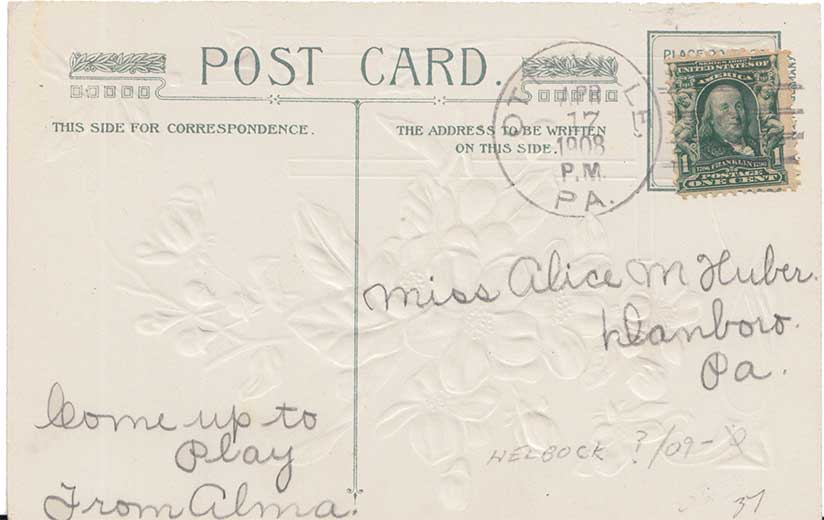 POST CARD.
THIS SIDE FOR CORRESPONDENCE.
THE ADDRESS TO BE WRITTEN
ON THIS SIDE.
APR
17
1908
P.M.
PA.
SERIES 1902
UNITED STATES OF
AMERICA
1706 FRANKLIN 1790
1 POSTAGE 1
ONE CENT
Miss Alice M Huber.
Pa.
Come up to
Play
From Alma.
HELBOCK ?/09-
37